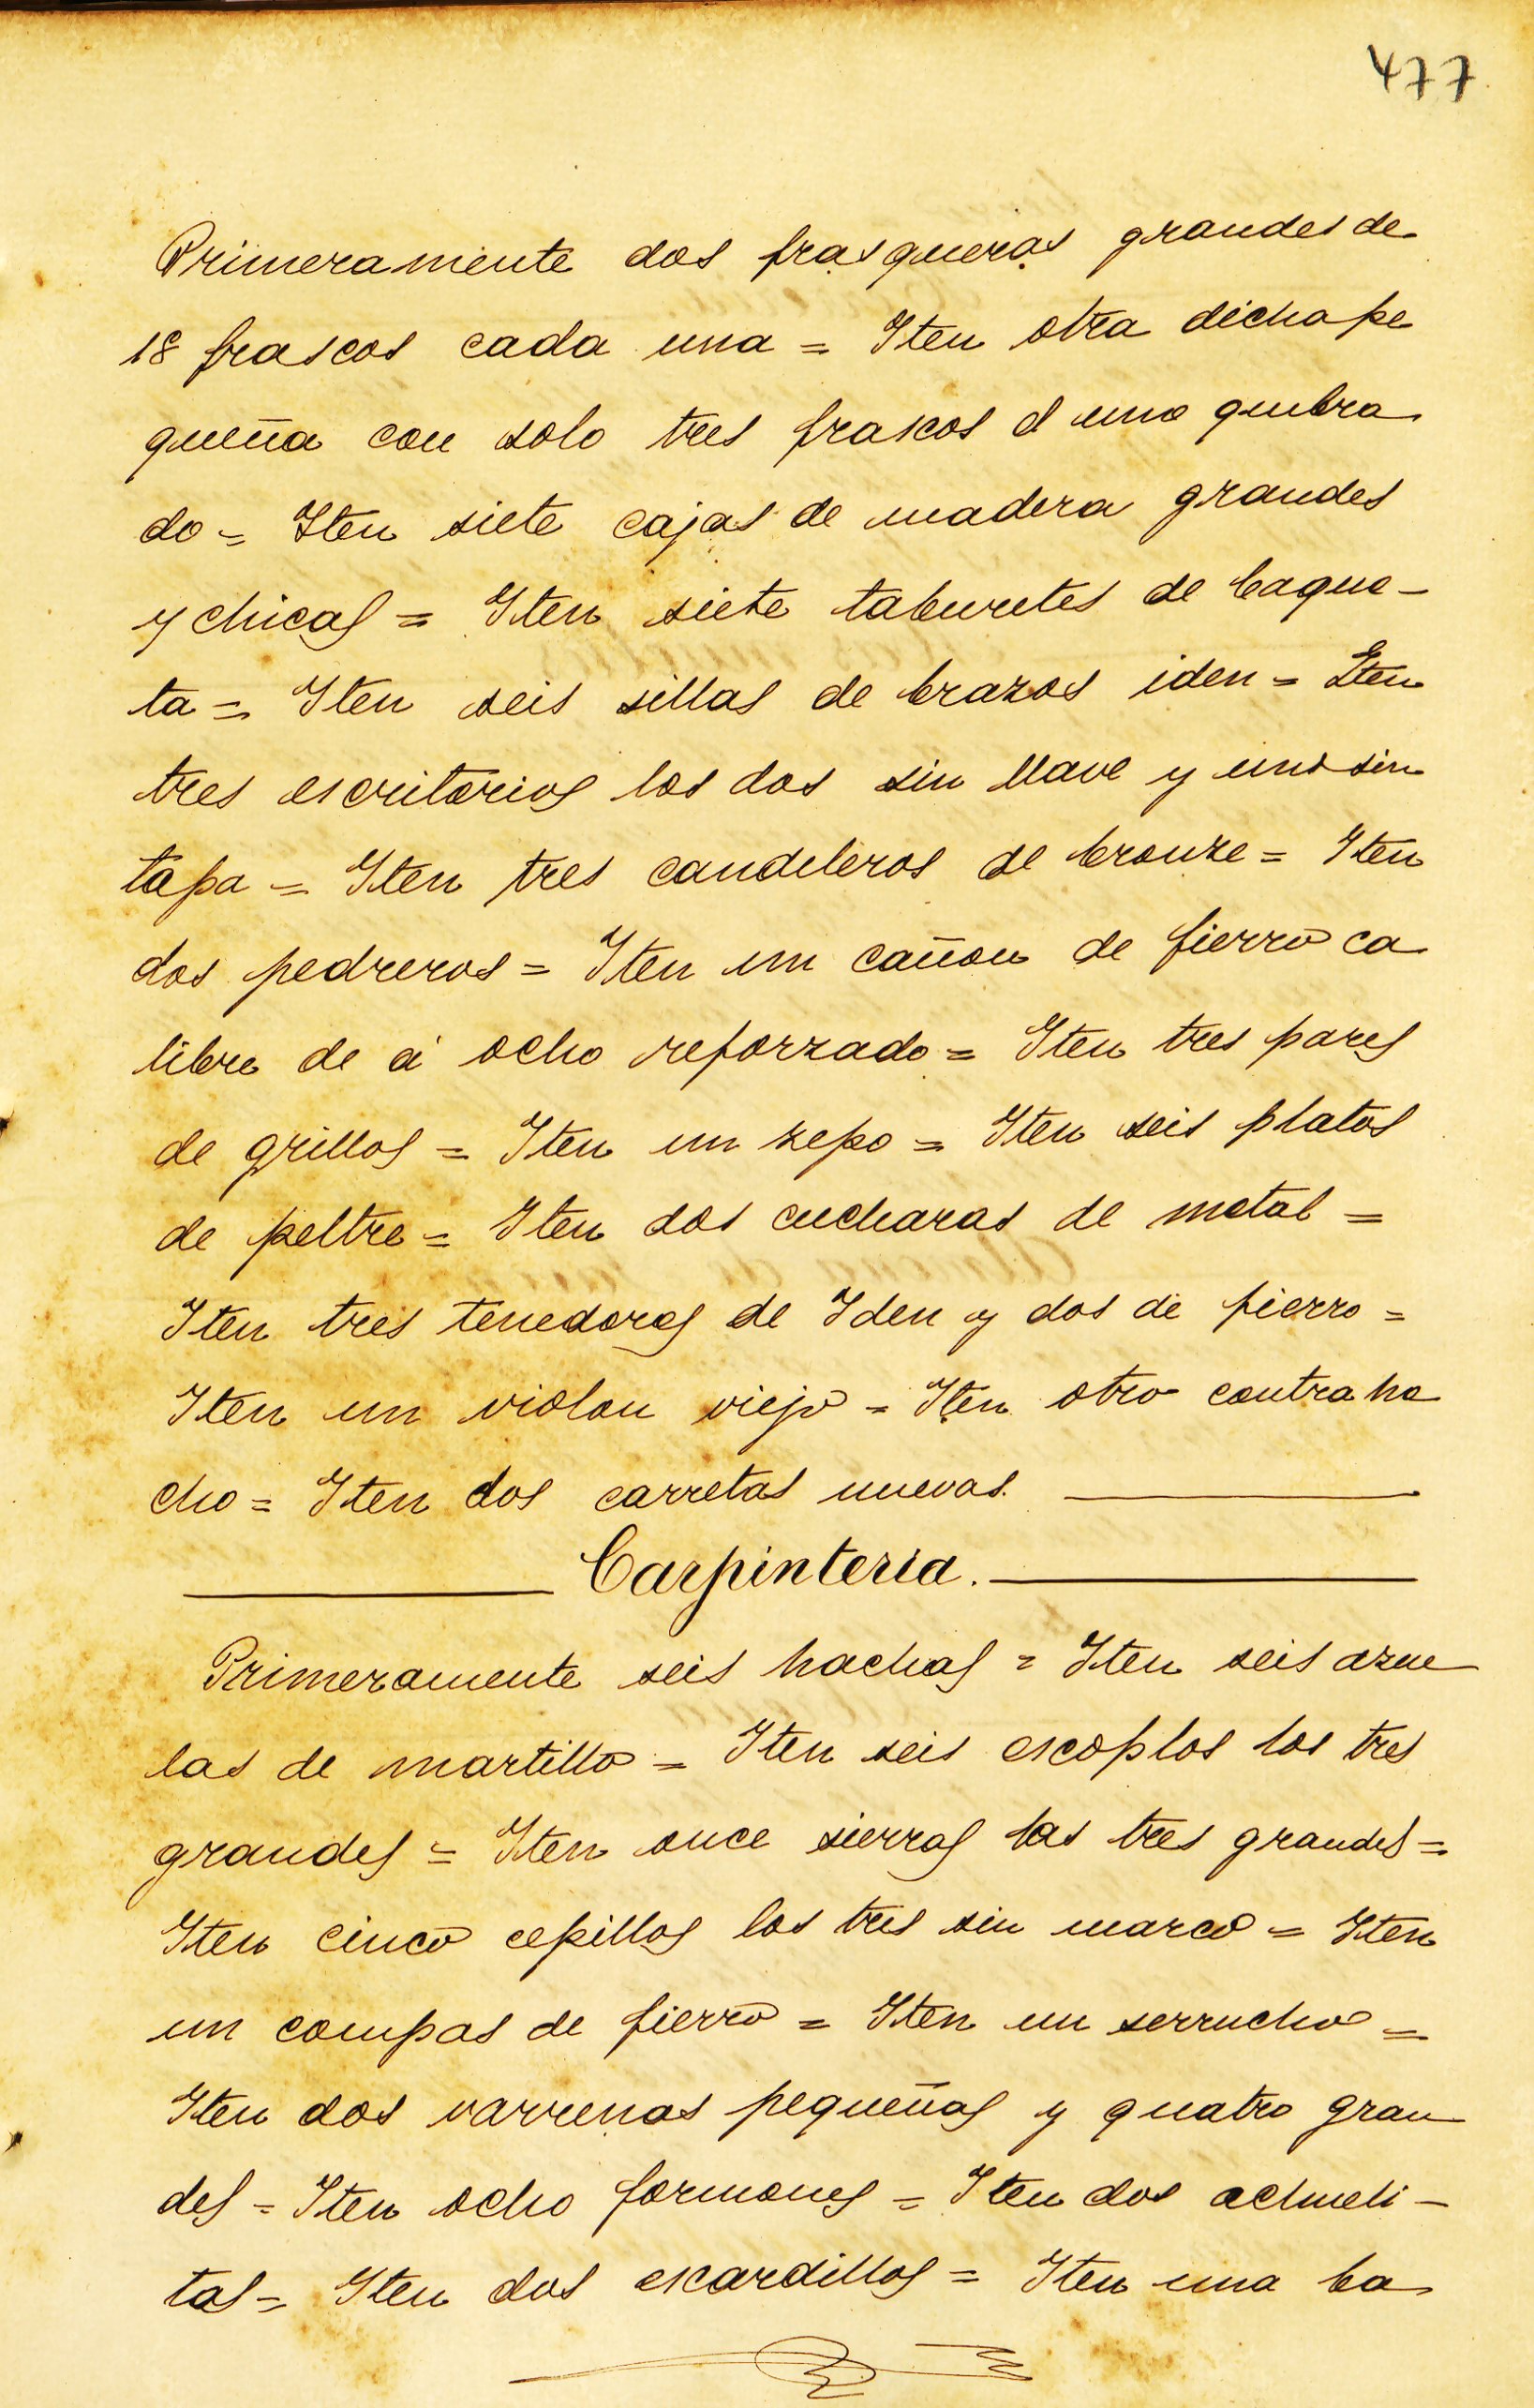 477
Primeramente dos frasqueras grandes de
18 frascos cada una = Iten otra dicha pe
queña con solo tres frascos el uno quebra
do = Iten siete cajas de madera grandes
y chicas = Iten siete taburetes de baque-
ta = Iten seis sillas de brazos iden = Iten
tres escritorios los dos sin llave y uno sin
tapa = Iten tres candeleros de bronze = Iten
dos pedreros = Iten un cañon de fierro ca
libre de á ocho reforzado = Iten tres pares
de grillos = Iten un zepo = Iten seis platos
de peltre = Iten dos cucharas de metal =
Iten tres tenedores de Iden y dos de fierro =
Iten un violon viejo = Iten otro contraha
cho = Iten dos carretas nuevas.
Carpinteria.
Primeramente seis hachas = Iten seis azue
las de martillo = Iten seis escoplos los tres
grandes = Iten once sierras las tres grandes =
Iten cinco cepillos los tres sin marco = Iten
un compas de fierro = Iten un serrucho =
Iten dos varrenas pequeñas y quatro gran
des = Iten ocho formones = Iten dos achueli-
tas = Iten dos escardillos = Iten una ba